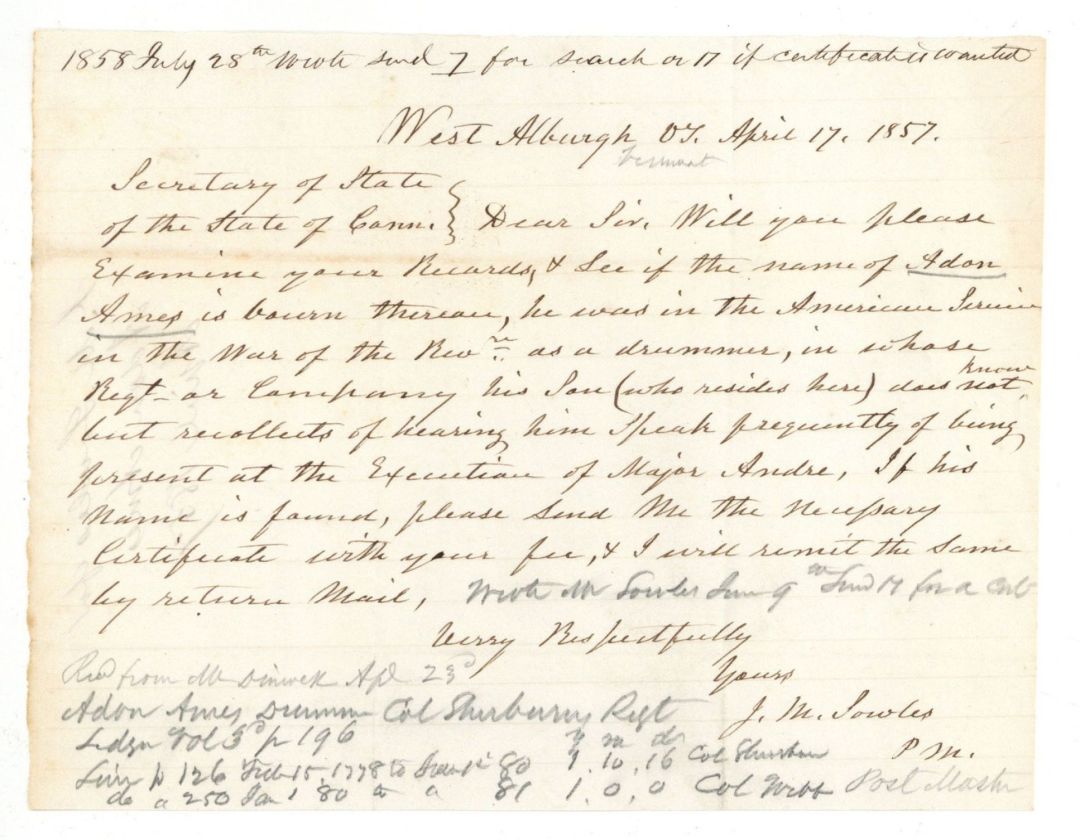 1858 July 28th Wrote send 7 for search or 17 if certificate is wanted
West Alburgh VT. April 17. 1857.
Vermont
Secretary of State
of the State of Conn. } Dear Sir. Will you please
Examine your Records, & See if the name of Adon
Ames is bourn thereon, he was in the American Service
in the War of the Revn as a drummer, in whose
Regt or Company his Son (who resides here) does not know,
but recollects of hearing him Speak frequently of being
present at the Execution of Major Andre, If his
Name is found, please Send Me the Necessary
Certificate with your fee, & I will remit the Same
by return Mail,
Wrote Mr Sowles 9 Send 17 for a Cert
Verry Respectfully
Yours
J. M. Sowles
P M.
Post Master
Recd from Mr Apl 23d
Adon Ames Drumm Col Sherburns Regt
Ledgr Vol 3d p 196 y m ds
p 126 Feb 15, 1778 to Jan 1 80 1. 10. 16 Col Sherburn
do a 250 Jan 1 80 to a 81 1. 0. 0 Col Webb